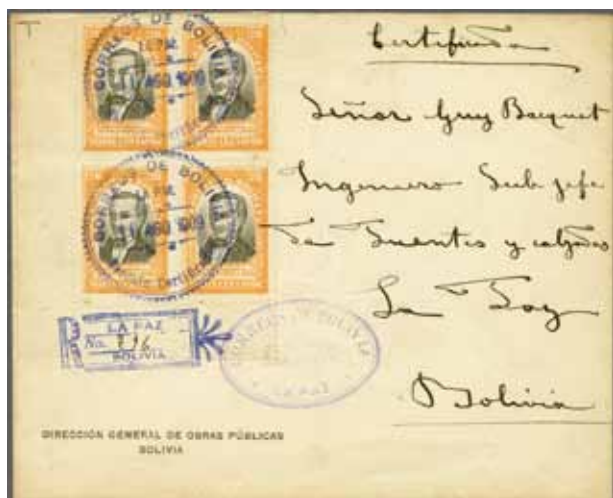 T
CORREOS DE BOLIVIA
LA PAZ
AGO 1909
CORREOS DE BOLIVIA
LA PAZ
11 AGO 1909
Certificada
Señor Guy Bacquet
Ingeniero Sub jefe
de Puentes y calzadas
La Paz
Bolivia
LA PAZ
No. 896
BOLIVIA
CORREOS DE BOLIVIA
LA PAZ
DIRECCIÓN GENERAL DE OBRAS PÚBLICAS
BOLIVIA